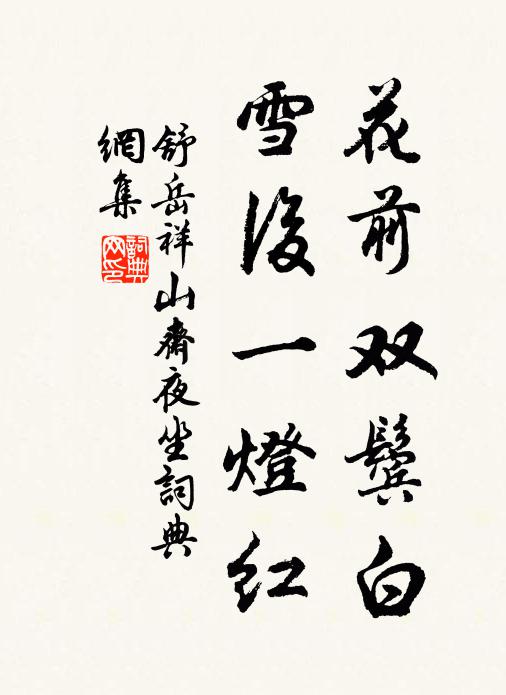 花前双鬓白
雪後一燈红
舒岳祥山齋夜坐詞典
網集
詞典網印